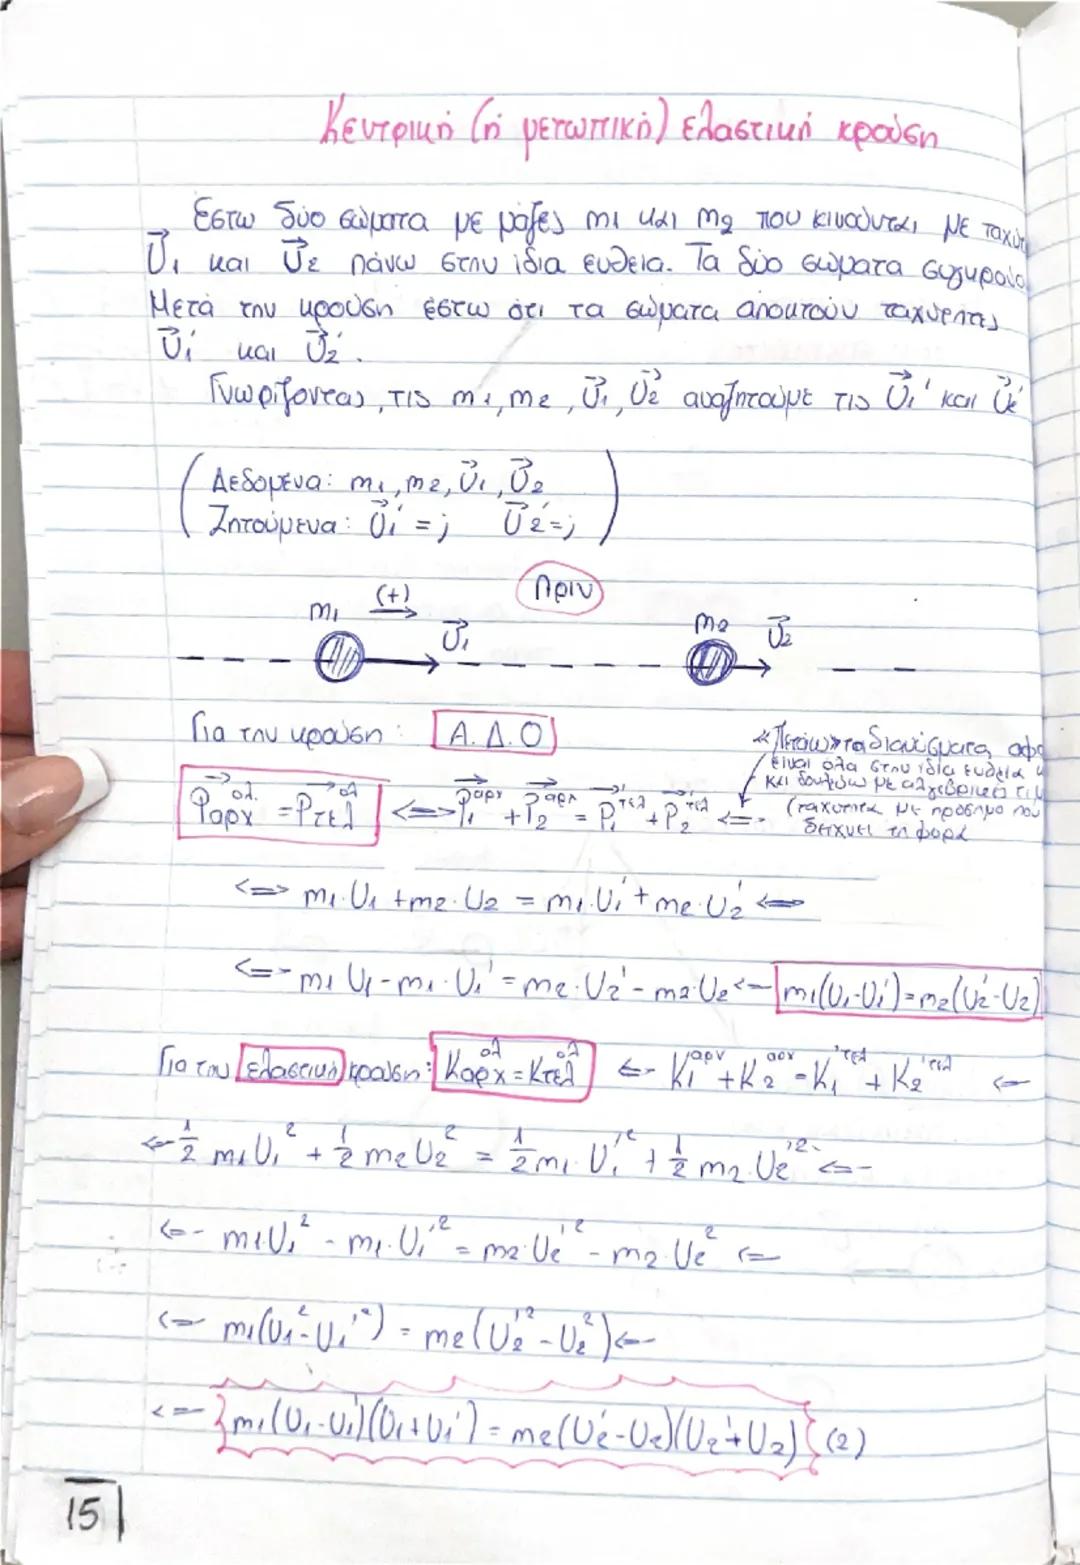 Κεντρική (ή μετωπική) ελαστική κρούση
Έστω δύο σώματα με μάζες m1 και m2 που κινούνται με
υ⃗1 και υ⃗2 πάνω στην ίδια ευθεία. Τα δύο σώματα
Μετά την κρούση έστω ότι τα σώματα αποκτούν ταχύτητες
υ⃗1' και υ⃗2'.
Γνωρίζοντας τις m1, m2, υ⃗1, υ⃗2 αναζητούμε τις υ⃗1' και υ⃗2'
Δεδομένα: m1, m2, υ⃗1, υ⃗2
Ζητούμενα: υ⃗1' = ; υ⃗2' = ;
Πριν
m1 (+) υ⃗1 m2 υ⃗2
Για την κρούση: Α.Δ.Ο
«Πετάω» τα διανύσματα, αφού
είναι όλα στην ίδια ευθεία
και δουλεύω με αλγεβρικές
(ταχύτητα με πρόσημο που
δείχνει τη φορά
P⃗αρχ ολ. = P⃗τελ ολ <=> P⃗1 αρχ + P⃗2 αρχ = P⃗1 τελ + P⃗2 τελ <=>
<=> m1·υ1 + m2·υ2 = m1·υ1' + m2·υ2' <=>
<=> m1 υ1 - m1·υ1' = m2·υ2' - m2·υ2 <=> m1(υ1-υ1') = m2(υ2'-υ2)
Για την ελαστική κρούση: Kαρχ ολ = Kτελ ολ <=> K1 αρχ + K2 αρχ = K1 τελ + K2 τελ <=>
<=> 1/2 m1υ1² + 1/2 m2υ2² = 1/2 m1·υ1'² + 1/2 m2·υ2'² <=>
<=> m1·υ1² - m1·υ1'² = m2·υ2'² - m2·υ2² <=>
<=> m1(υ1²-υ1'²) = m2(υ2'²-υ2²) <=>
<=> m1(υ1-υ1')(υ1+υ1') = m2(υ2'-υ2)(υ2'+υ2) (2)
15